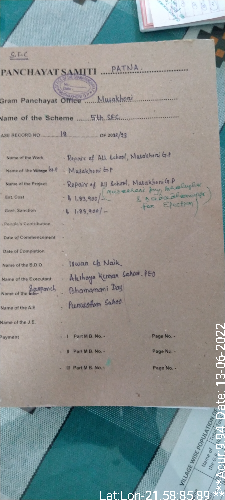 SFC
PANCHAYAT SAMITI PATNA
Gram Panchayat Office Musakhori
Name of the Scheme 5th SFC
CASE RECORD NO 19 OF 2022/23
Name of the Work Repair of All School, Musakhori G.P
Name of the Village G.P Musakhori G.P
Name of the Project Repair of All School, Musakhori G.P
Est. Cost
Govt. Sanction
People's Contribution
Date of Commencement
Date of Completion
Name of the B.D.O. Iswar Ch Naik,
Name of the Executant Akshaya Kumar Sahoo, PEO
Sarpanch
Name of the Dhanamani Das
Name of the A.E Purusottam Sahoo
Name of the J.E.
Payment I Part M.B. No.- Page No.-
II Part M.B. No.- Page No.-
III Part M.B. No.- Page No.-
VILLAGE WISE POPULATION
Lat:Lon-21.58:85.89
***Acur:9.94 Date:13-06-2022